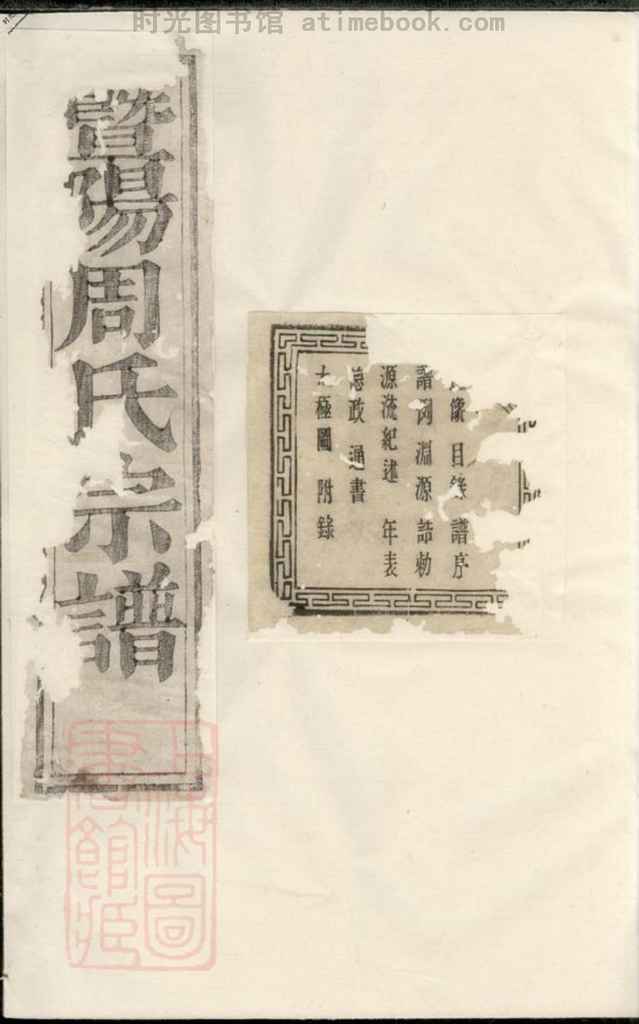 时光图书馆 atimebook.com
暨陽周氏宗譜
像 目錄 譜序
譜例 淵源 誥勅
源流紀述 年表
政 通書
太極圖 附錄
上海圖
書館藏